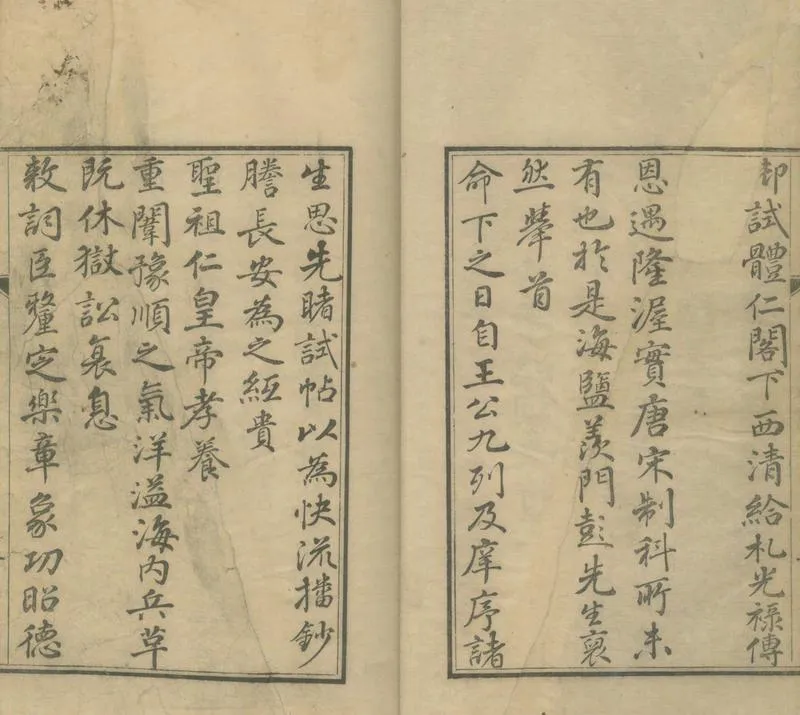 却試體仁閣下西清給札光祿傳
恩遇隆渥實唐宋制科所未
有也於是海鹽羨門彭先生裒
然舉首
命下之日自王公九列及庠序諸
生思先睹試帖以為快流播鈔
謄長安為之紙貴
聖祖仁皇帝孝養
重闈豫順之氣洋溢海內兵革
既休獄訟衰息
敕詞臣釐定樂章象功昭德